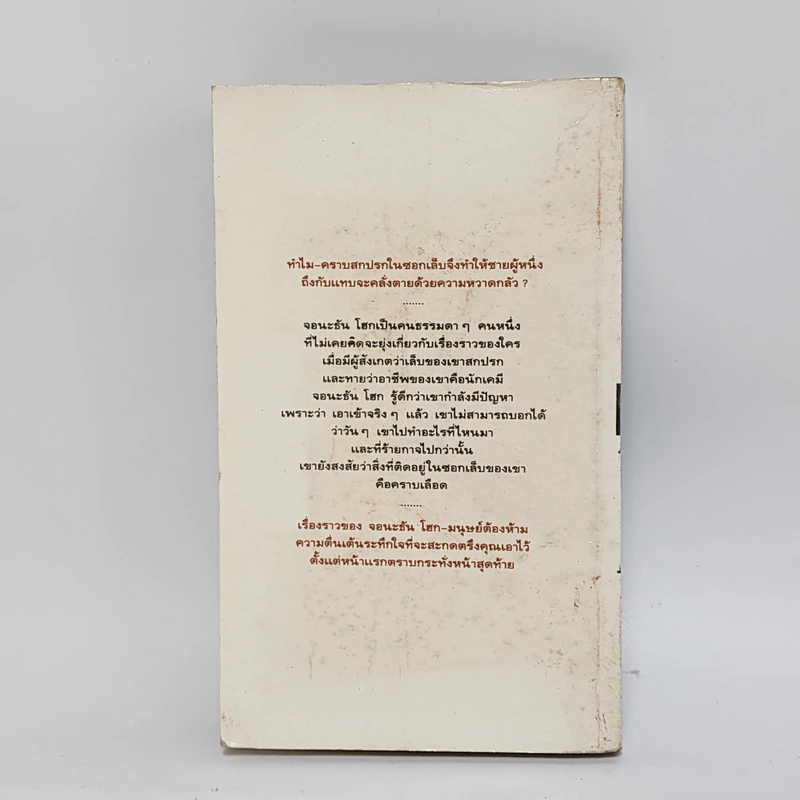 ทำไม-คราบสกปรกในซอกเล็บจึงทำให้ชายผู้หนึ่ง
ถึงกับแทบจะคลั่งตายด้วยความหวาดกลัว ?
.......
จอนะธัน โฮกเป็นคนธรรมดา ๆ คนหนึ่ง
ที่ไม่เคยคิดจะยุ่งเกี่ยวกับเรื่องราวของใคร
เมื่อมีผู้สังเกตว่าเล็บของเขาสกปรก
และทายว่าอาชีพของเขาคือนักเคมี
จอนะธัน โฮก รู้ดีกว่าเขากำลังมีปัญหา
เพราะว่า เอาเข้าจริง ๆ แล้ว เขาไม่สามารถบอกได้
ว่าวัน ๆ เขาไปทำอะไรที่ไหนมา
และที่ร้ายกาจไปกว่านั้น
เขายังสงสัยว่าสิ่งที่ติดอยู่ในซอกเล็บของเขา
คือคราบเลือด
.......
เรื่องราวของ จอนะธัน โฮก-มนุษย์ต้องห้าม
ความตื่นเต้นระทึกใจที่จะสะกดตรึงคุณเอาไว้
ตั้งแต่หน้าแรกตราบกระทั่งหน้าสุดท้าย